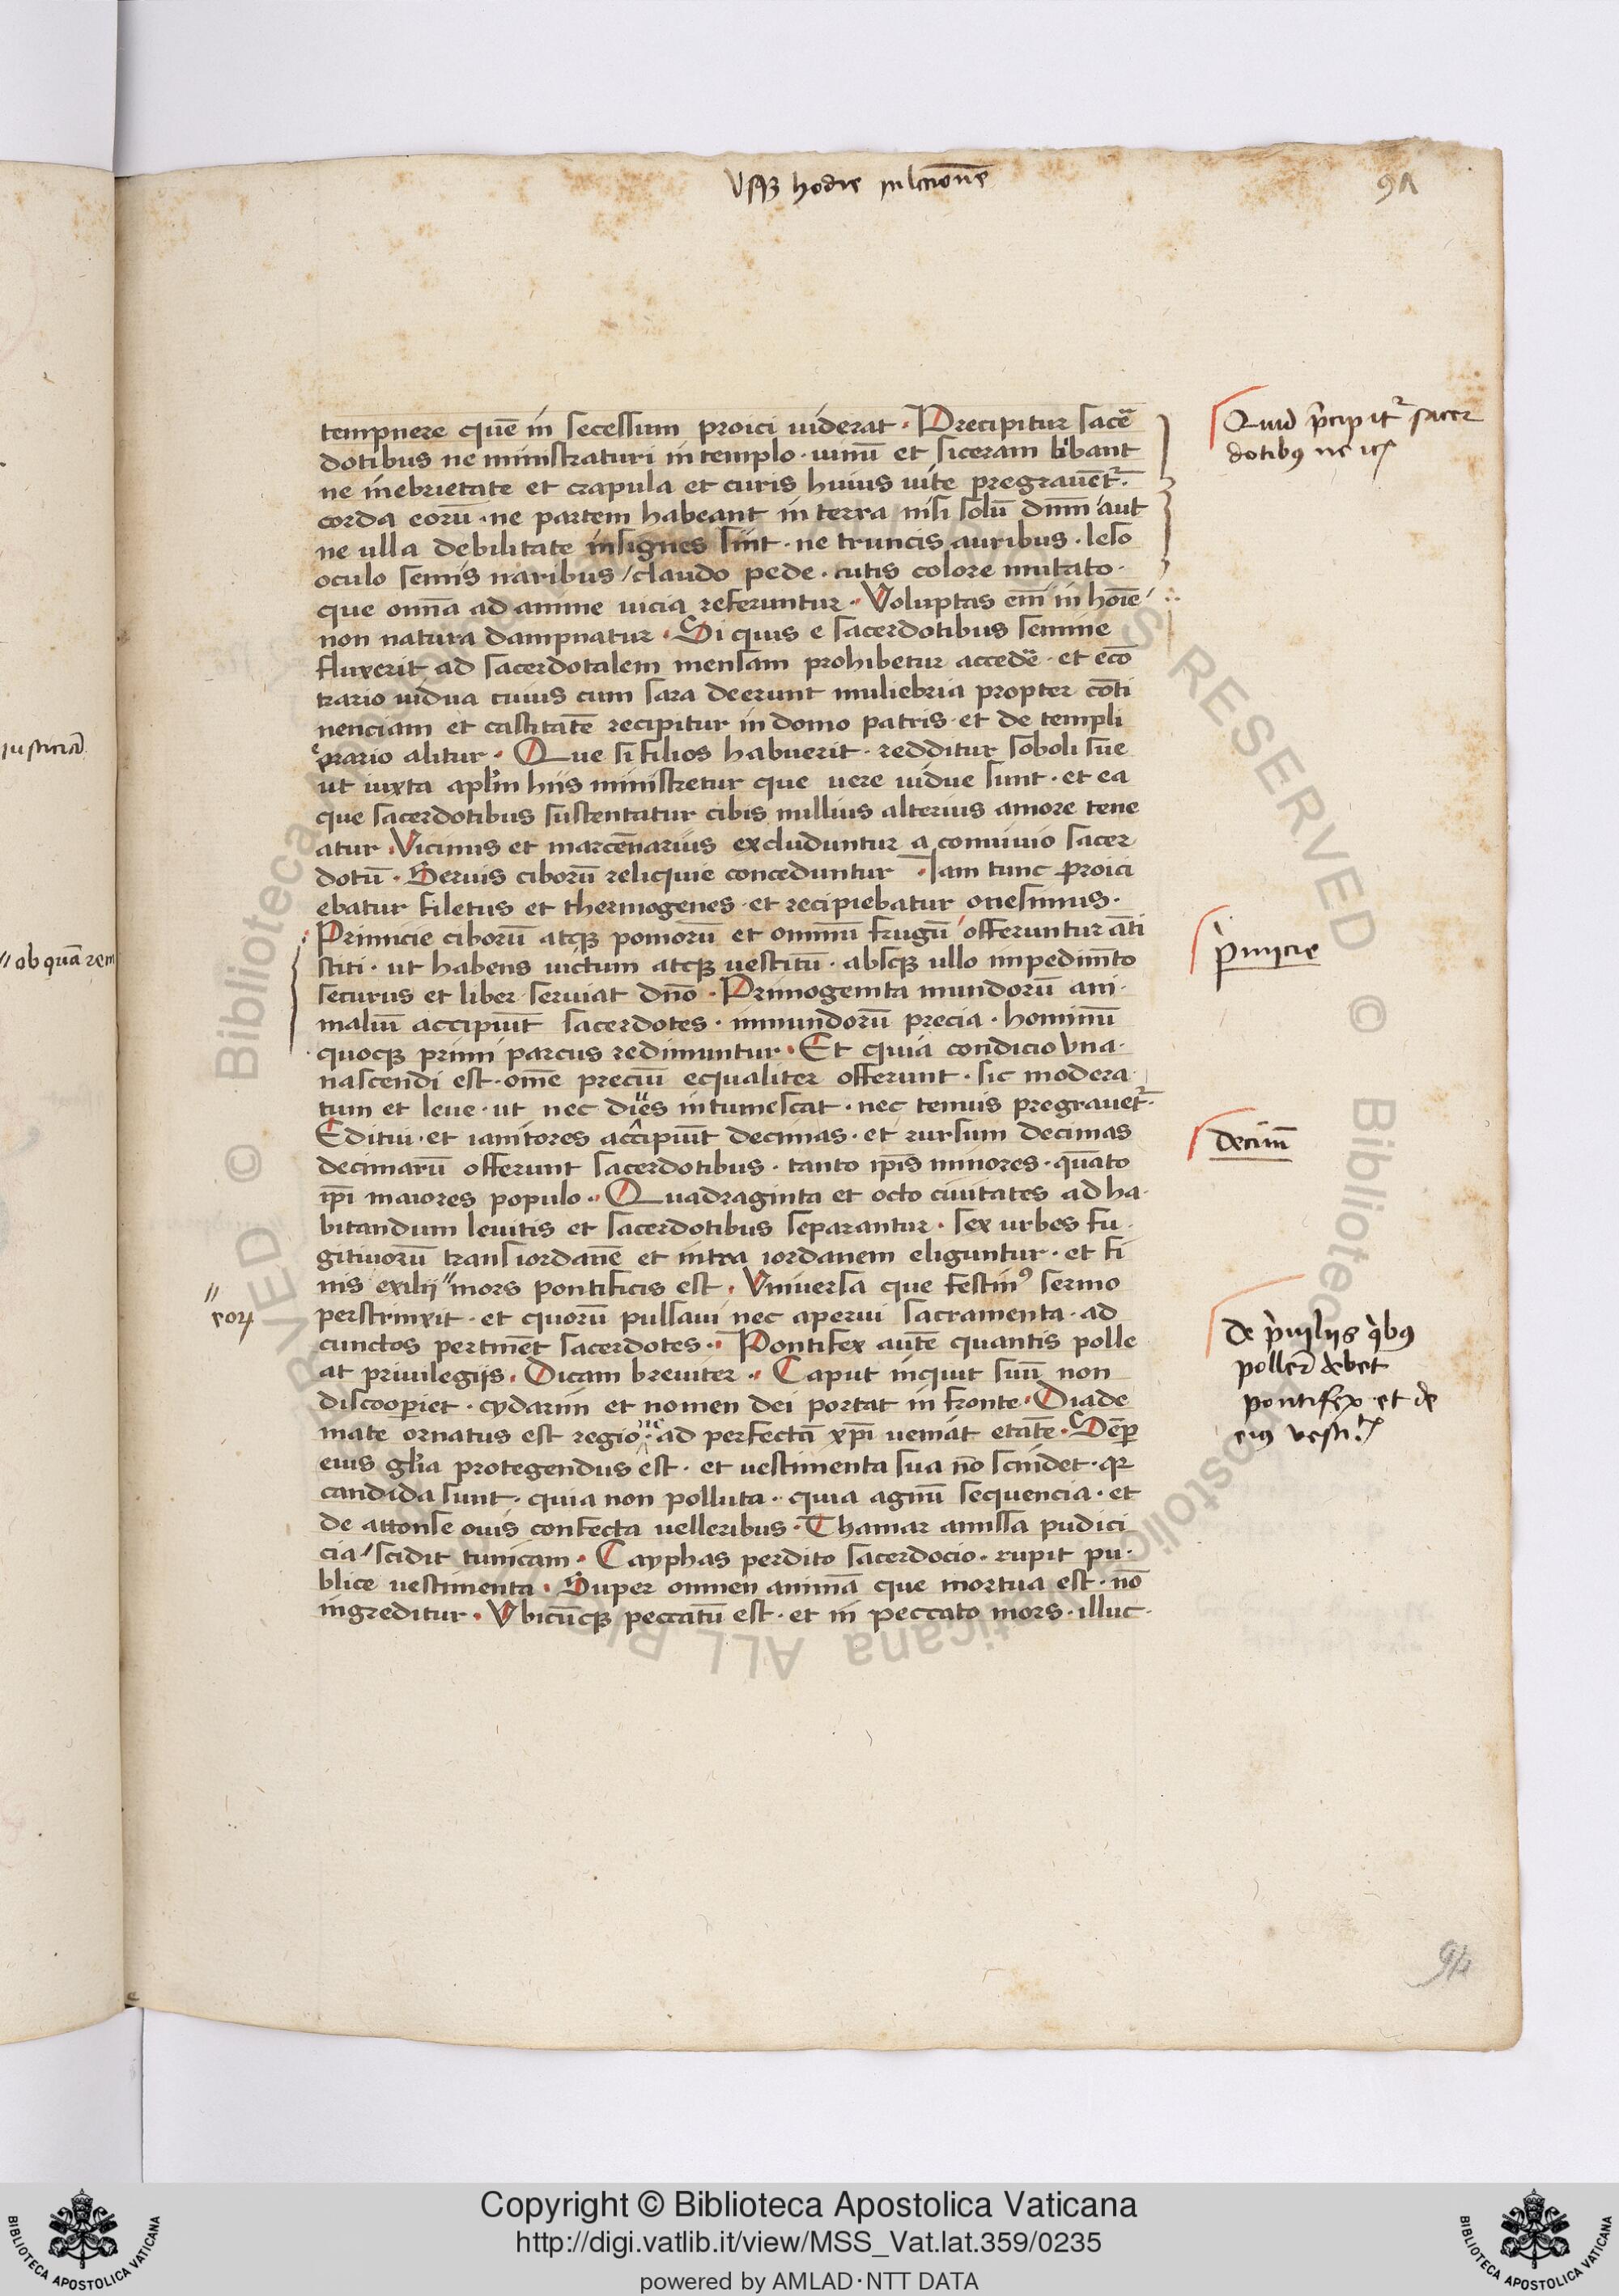 vsq3 hodie in lectione
tempnere quē in secessum proici uiderat · Precipitur sacē
dotibus ne ministraturi in templo · uinū et siceram bibant
ne in ebrietate et crapula et curis huius uite pregrauent᷑
corda eorū · ne partem habeant in terra nisi solū dnm̄ aut
ne ulla debilitate insignes sint · ne truncis auribus · leso
oculo semis naribus / claudo pede · cutis colore mutato ·
que omīa ad anime uicia referuntur · Voluptas em̄ in hoīe /
non natura dampnatur · Si quis e sacerdotibus semine
fluxerit ad sacerdotalem mensam prohibetur accedē · et ecō
trario uidua cuius cum sara deerunt muliebria propter cōti
nenciam et castitatē recipitur in domo patris · et de templi
erario alitur · Que si filios habuerit · redditur soboli sue
ut iuxta apl̄m hiis ministretur que uere uidue sunt · et ea
que sacerdotibus sustentatur cibis nullius alterius amore tene
atur · Vicinus et marcēnarius excluduntur a conuiuio sacer
dotū · Seruis ciborū reliquie conceduntur · Iam tunc proici
ebatur filetus et thermogenes · et recipiebatur onesimus ·
Primicie ciborū atq3 pomorū et omniū frugū offeruntur āti
stiti · ut habens uictum atq3 uestitū · absq3 ullo impedimēto
securus et liber seruiat dn̄o · Primogenita mundorū ani
maliū accipiūt sacerdotes · inmundorū precia · hominū
quoq3 primi parcus redimuntur · Et quia condicio vna
nascendi est · om̄e preciū equaliter offerunt · sic modera
tum et leue · ut nec diues intumescat · nec tenuis pregrauet᷑
Editui · et ianitores accipiūt decimas · et rursum decimas
decimarū offerunt sacerdotibus · tanto ip̄is minores · quāto
ip̄i maiores populo · Quadraginta et octo ciuitates ad ha
bitandum leuitis et sacerdotibus separantur · sex urbes fu
gitiuorū trans iordanē et intra iordanem eliguntur · et fi
nis exilij " mors pontificis est · Vniuersa que festinꝰ sermo
perstrinxit · et quorū pulsaui nec aperui sacramenta · ad
cunctos pertinēt sacerdotes · Pontifex autē quantis polle
at priuilegijs · Dicam breuiter · Caput inquit suū non
discooperiet · cydarim et nomen dei portat in fronte · Diade
mate ornatus est regio · ad perfectā xp̄i ueniat etatē · Semp̄
eius gl̄ia protegendus est · et uestimenta sua nō scindet · qr
candida sunt · quia non polluta · quia agnū sequencia · et
de attonse ouis confecta uelleribus · Thamar amissa pudici
cia / scidit tunicam · Cayphas perdito sacerdocio · rupit pu
blice uestimenta · Super omnen animā que mortua est · nō
ingreditur · Vbicūq3 peccatū est · et in peccato mors · illuc
Quid p̄cipit᷑ sacer
dotibꝰ
p̄micie
decim̄
de p̄uilijs q̄bꝰ
poller̄ debet
pontifex et de
eiꝰ
" eoꝝ
iusticiā
// ob quā rem
94
Copyright © Biblioteca Apostolica Vaticana
http://digi.vatlib.it/view/MSS_Vat.lat.359/0235
powered by AMLAD·NTT DATA
BIBLIOTECA APOSTOLICA VATICANA
BIBLIOTECA APOSTOLICA VATICANA